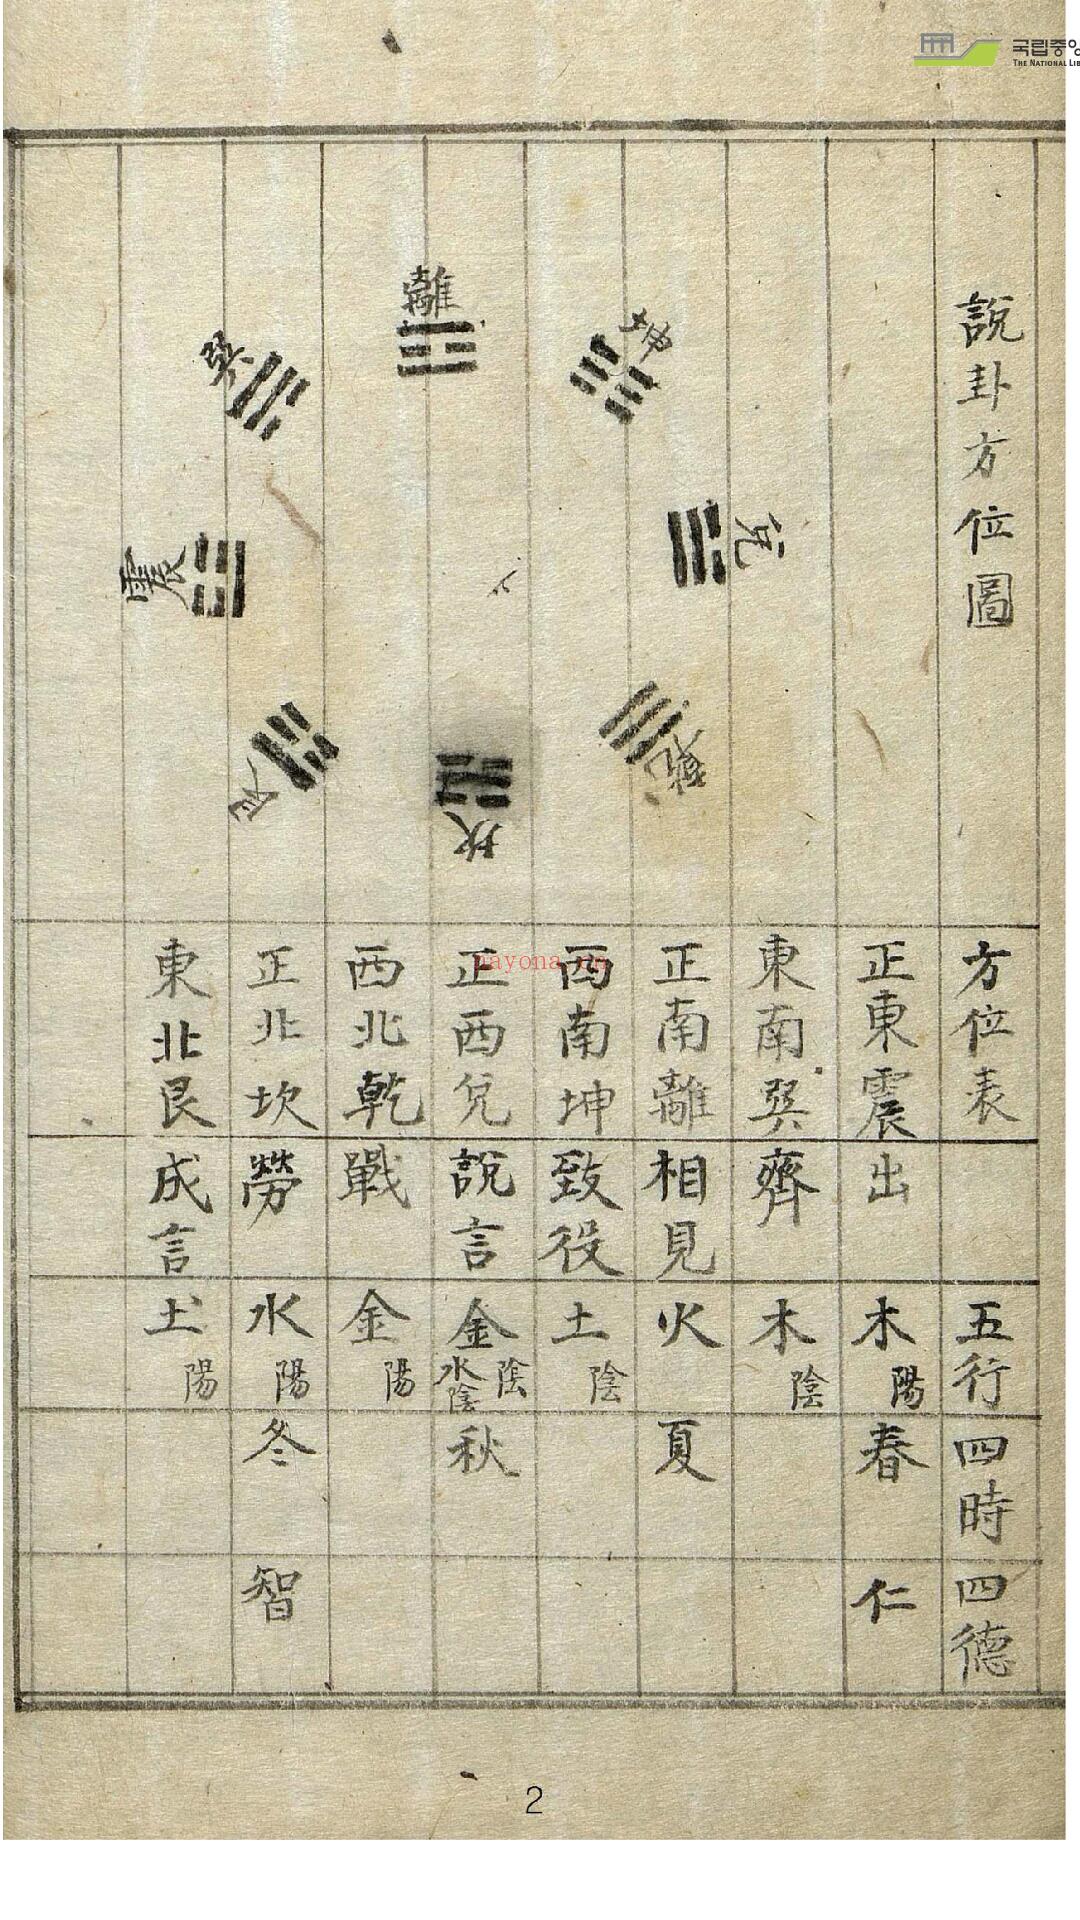 국립중앙
THE NATIONAL LIB
說卦方位圖
離
坤
兌
乾
坎
艮
震
巽
方位表
五行
四時
四德
正東震
出
木
陽
春
仁
東南巽
齊
木
陰
正南離
相見
火
夏
西南坤
致役
土
陰
正西兌
說言
金
陰
水
陰
秋
西北乾
戰
金
陽
正北坎
勞
水
陽
冬
智
東北艮
成言
土
陽
2